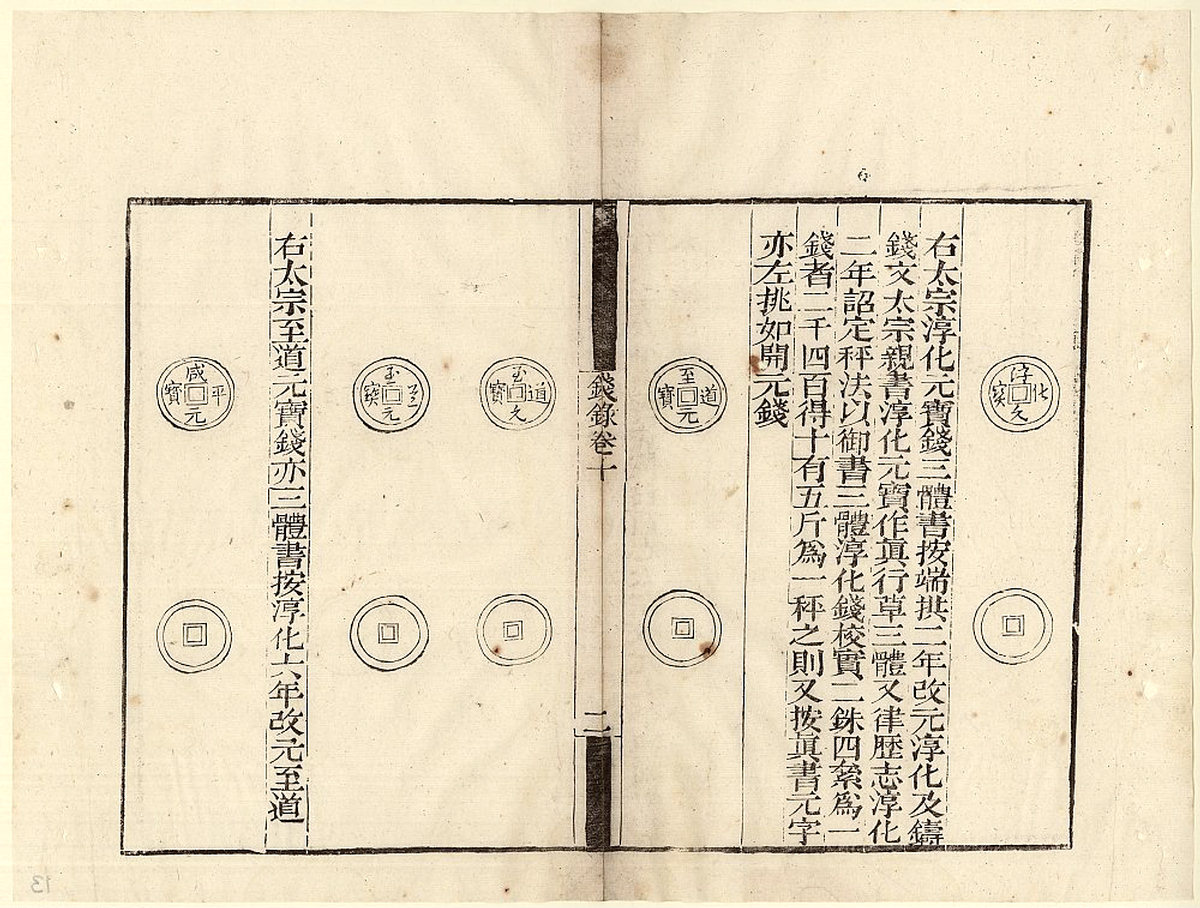 淳化元寶
右太宗淳化元寶錢三體書按端拱二年改元淳化及鑄
錢文太宗親書淳化元寶作眞行草三體又律歴志淳化
二年詔定秤法以御書三體淳化錢校實二銖四絫爲一
錢者二千四百得十有五斤爲一秤之則又按眞書元字
亦左挑如開元錢
至道元寶
錢錄卷十
二
至道元寶
至道元寶
右太宗至道元寶錢亦三體書按淳化六年改元至道
咸平元寶
13